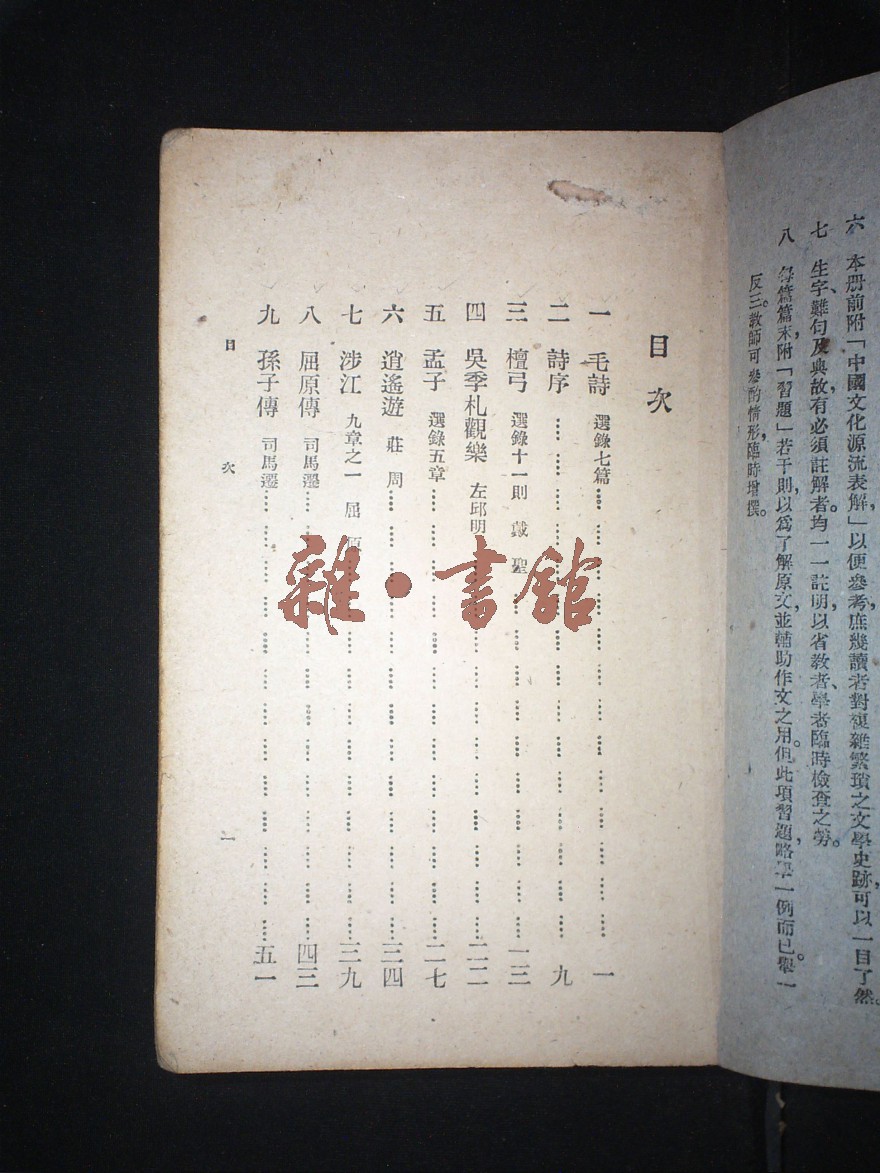 六　本册前附「中國文化源流表解」，以便參考，庶幾讀者對複雜繁瑣之文學史跡，可以一目了然。
七　生字、難句及典故有必須註解者，均一一註明，以省教者、學者臨時檢查之勞。
八　每篇篇末附「習題」若干則，以爲了解原文並輔助作文之用。但此項習題，略舉一例而已，舉一
反三，教師可參酌情形，臨時增撰。
目次
一　毛詩　選錄七篇…………一
二　詩序…………九
三　檀弓　選錄十一則　戴聖…………一三
四　吳季札觀樂　左邱明…………二二
五　孟子　選錄五章…………二七
六　逍遙遊　莊周…………三四
七　涉江　九章之一　屈原…………三九
八　屈原傳　司馬遷…………四三
九　孫子傳　司馬遷…………五一
目次　一
雜·書館